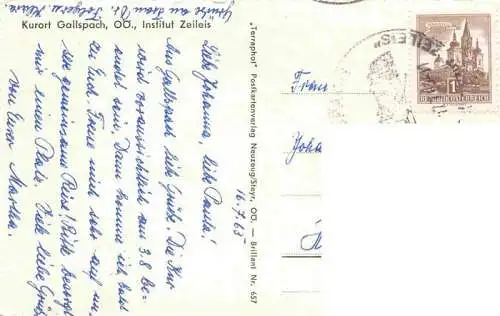 Grüße an Frau Dr.
Kurort Gallspach, OÖ., Institut Zeileis
16.7.63
Liebe Johanna, liebe Paula!
Aus Gallspach liebe Grüße. Die Kur
wird voraussichtlich am 3.8 be-
endet sein, Dann komme ich bald
zu Euch. Freue mich sehr auf un-
sere gemeinsame Reise! Bitte besorgt
mir einen Platz. Viele liebe Grüße
von Eurer Martha.
"Terraphot" Postkartenverlag Neuzeug/Steyr, OÖ. — Brillant Nr. 657
Frau
Joha
ZEILEIS"
REPUBLIK ÖSTERREICH